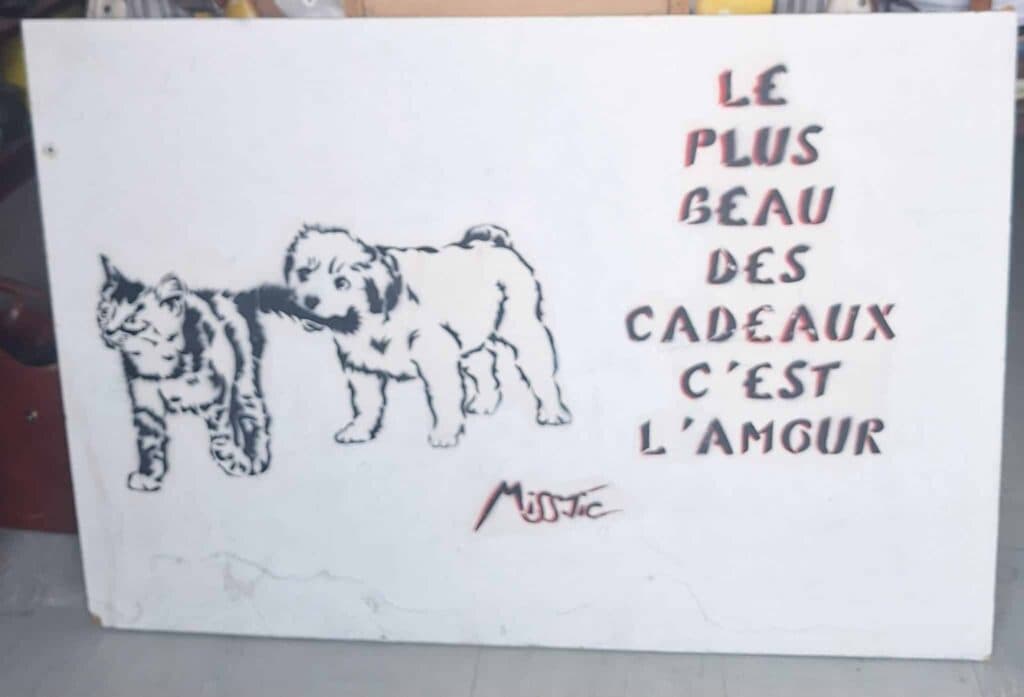 LE
PLUS
BEAU
DES
CADEAUX
C'EST
L'AMOUR
MISSTIC